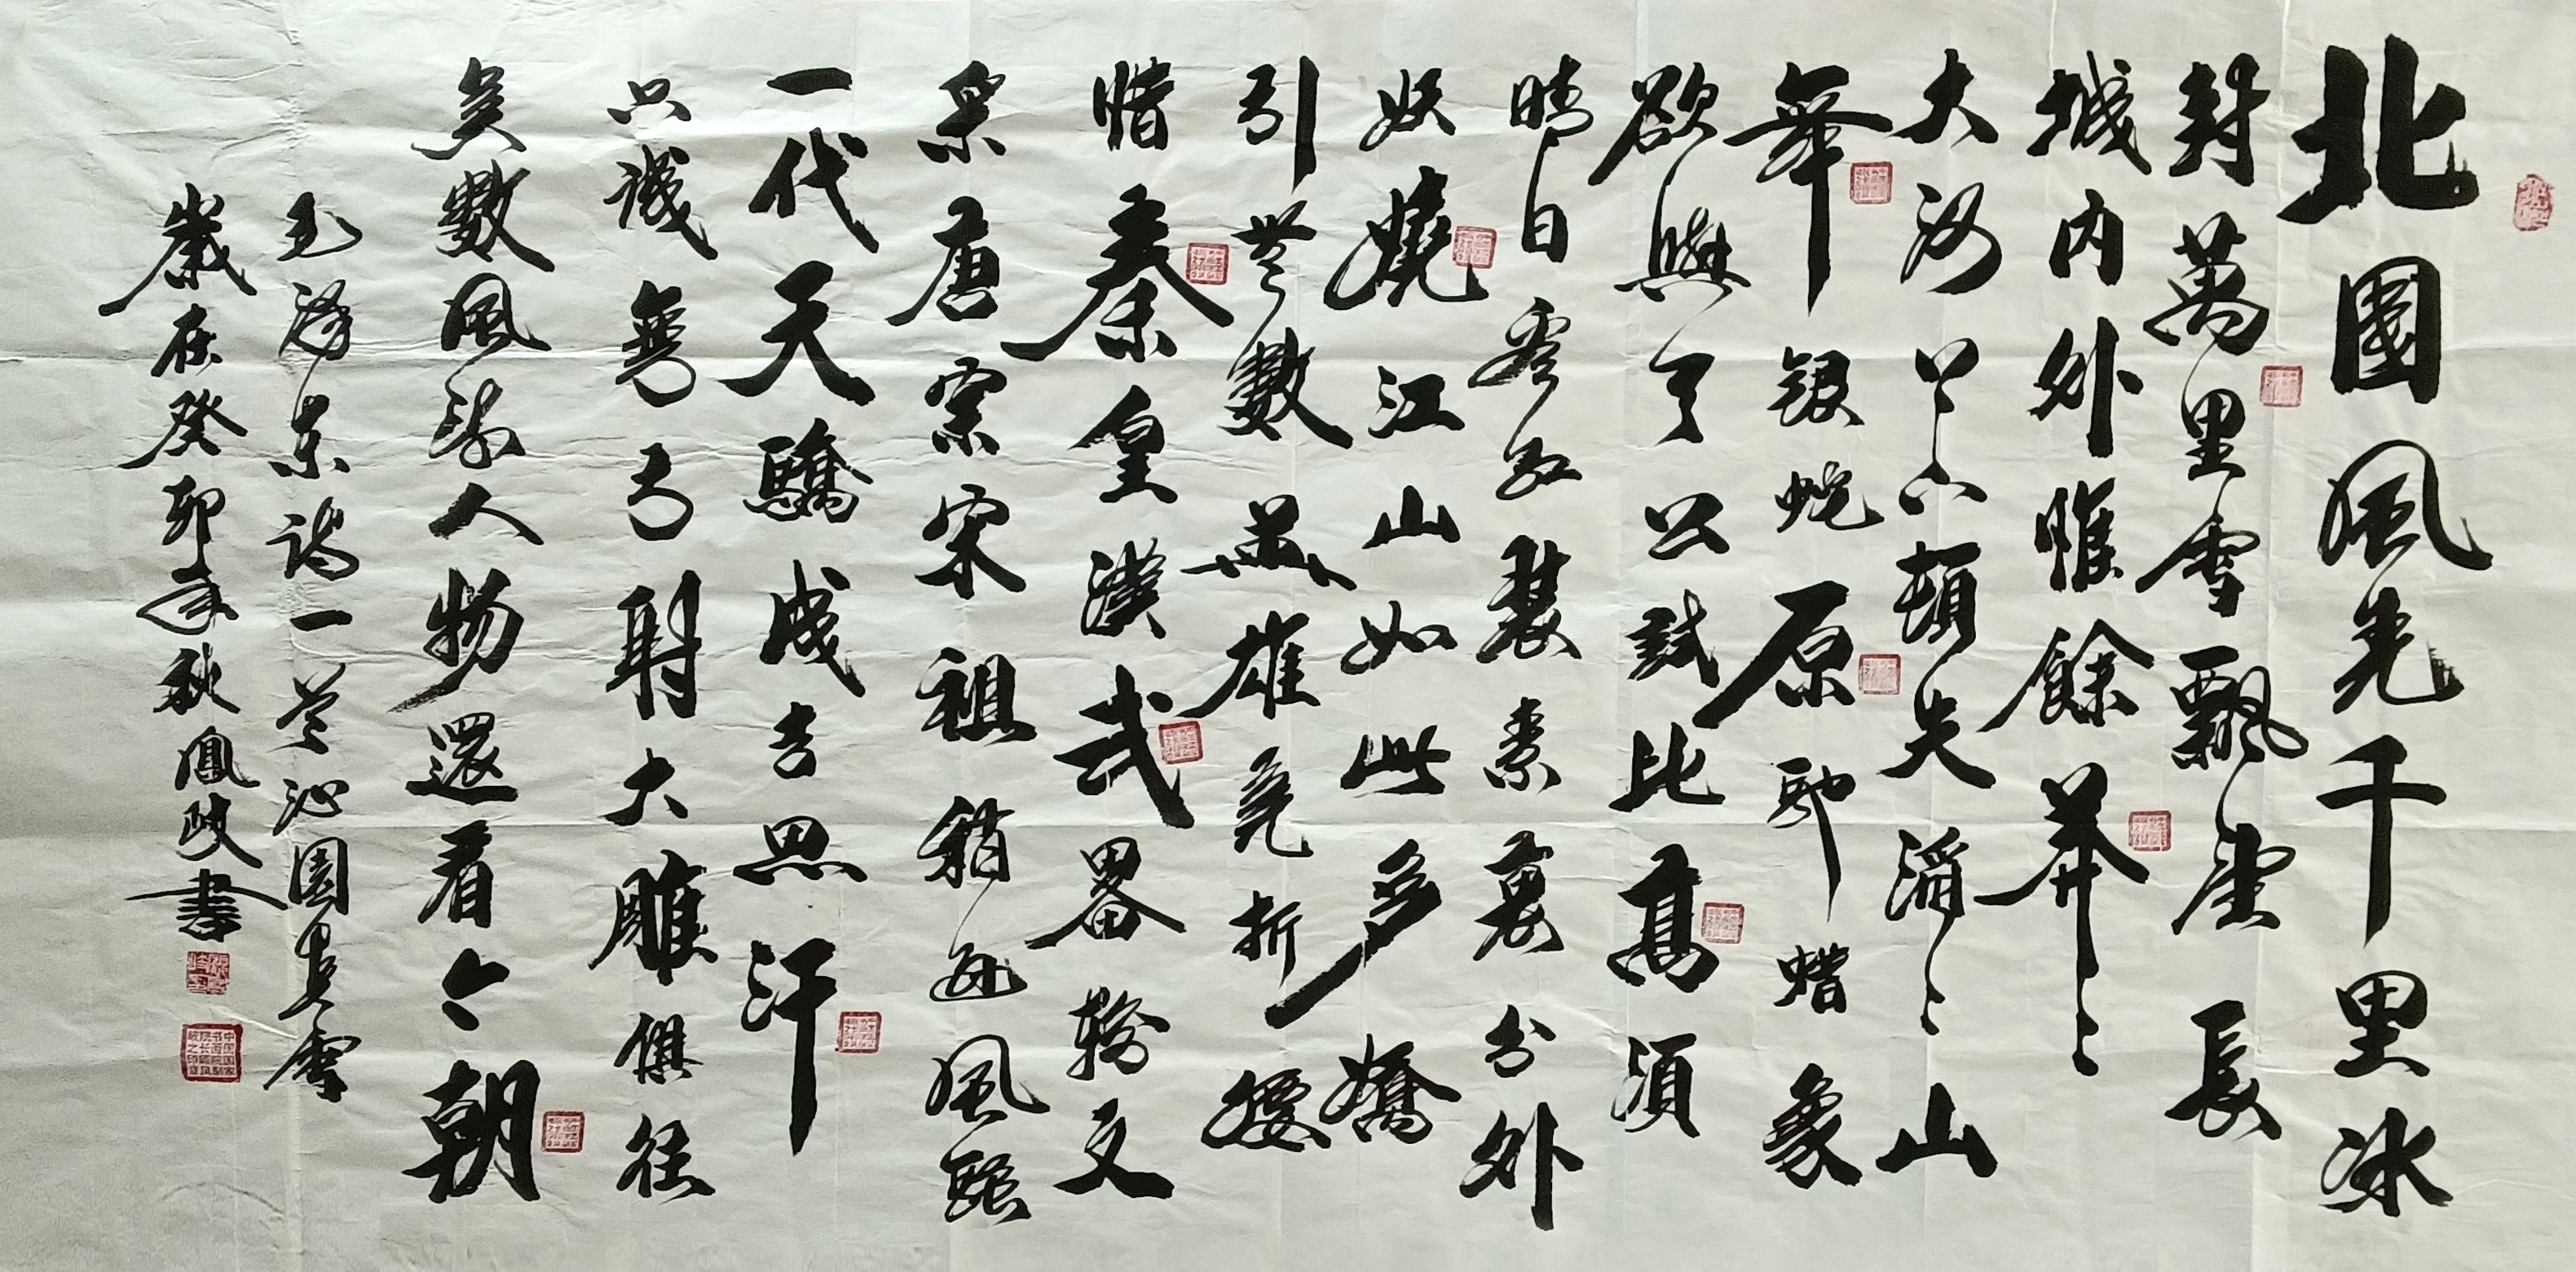 北國風光千里冰
封萬里雪飄望長
城内外惟餘莽〻
大河上下頓失滔〻山
舞銀蛇原馳蠟象
欲與天公試比高須
晴日看紅裝素裹分外
妖嬈江山如此多嬌
引無數英雄競折腰
惜秦皇漢武畧輸文
采唐宗宋祖稍遜風騷
一代天驕成吉思汗
只識彎弓射大雕俱往
矣數風流人物還看今朝
毛澤東詞一首沁園春雪
歲在癸卯年秋鳳岐書